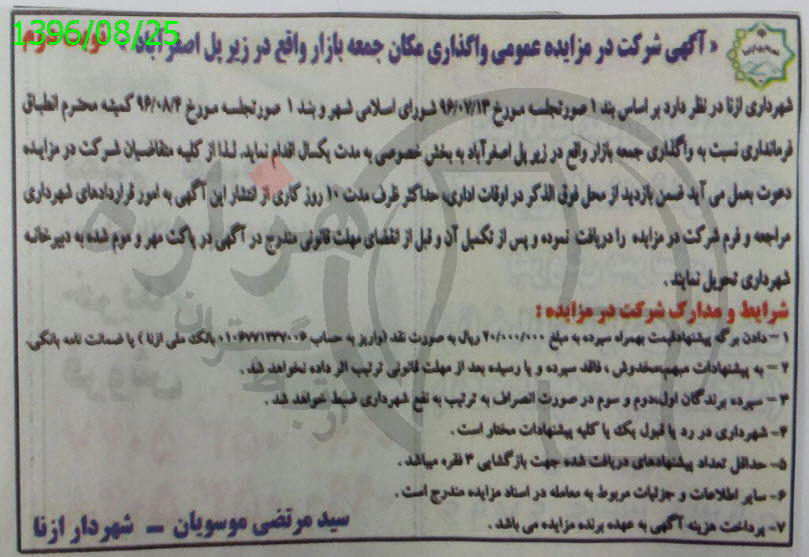 1396/08/25
« آگهی شرکت در مزایده عمومی واگذاری مکان جمعه بازار واقع در زیر پل اصغرآباد » نوبت دوم
شهرداری ازنا در نظر دارد بر اساس بند ۱ صورتجلسه مورخ ۹۶/۰۷/۱۳ شورای اسلامی شهر و بند ۱ صورتجلسه مورخ ۹۶/۰۸/۴ کمیته محترم انطباق
فرمانداری نسبت به واگذاری جمعه بازار واقع در زیر پل اصغرآباد به بخش خصوصی به مدت یکسال اقدام نماید. لذا از کلیه متقاضیان شرکت در مزایده
دعوت بعمل می آید ضمن بازدید از محل فوق الذکر در اوقات اداری، حداکثر ظرف مدت ۱۰ روز کاری از انتشار این آگهی به امور قراردادهای شهرداری
مراجعه و فرم شرکت در مزایده را دریافت نموده و پس از تکمیل آن و قبل از انقضای مهلت قانونی مندرج در آگهی در پاکت مهر و موم شده به دبیرخانه
شهرداری تحویل نمایند .
شرایط و مدارک شرکت در مزایده :
۱ – دادن برگه پیشنهادقیمت بهمراه سپرده به مبلغ ۲۰/۰۰۰/۰۰۰ ریال به صورت نقد (واریز به حساب ۰۱۰۶۷۷۱۲۳۷۰۰۶ بانک ملی ازنا ) یا ضمانت نامه بانکی.
۲ – به پیشنهادات مبهم،مخدوش ، فاقد سپرده و یا رسیده بعد از مهلت قانونی ترتیب اثر داده نخواهد شد .
۳ – سپرده برندگان اول،دوم و سوم در صورت انصراف به ترتیب به نفع شهرداری ضبط خواهد شد .
۴– شهرداری در رد یا قبول یک یا کلیه پیشنهادات مختار است .
۵– حداقل تعداد پیشنهادهای دریافت شده جهت بازگشایی ۳ فقره میباشد .
۶– سایر اطلاعات و جزئیات مربوط به معامله در اسناد مزایده مندرج است .
۷– پرداخت هزینه آگهی به عهده برنده مزایده می باشد .
سید مرتضی موسویان – شهردار ازنا
هزاره